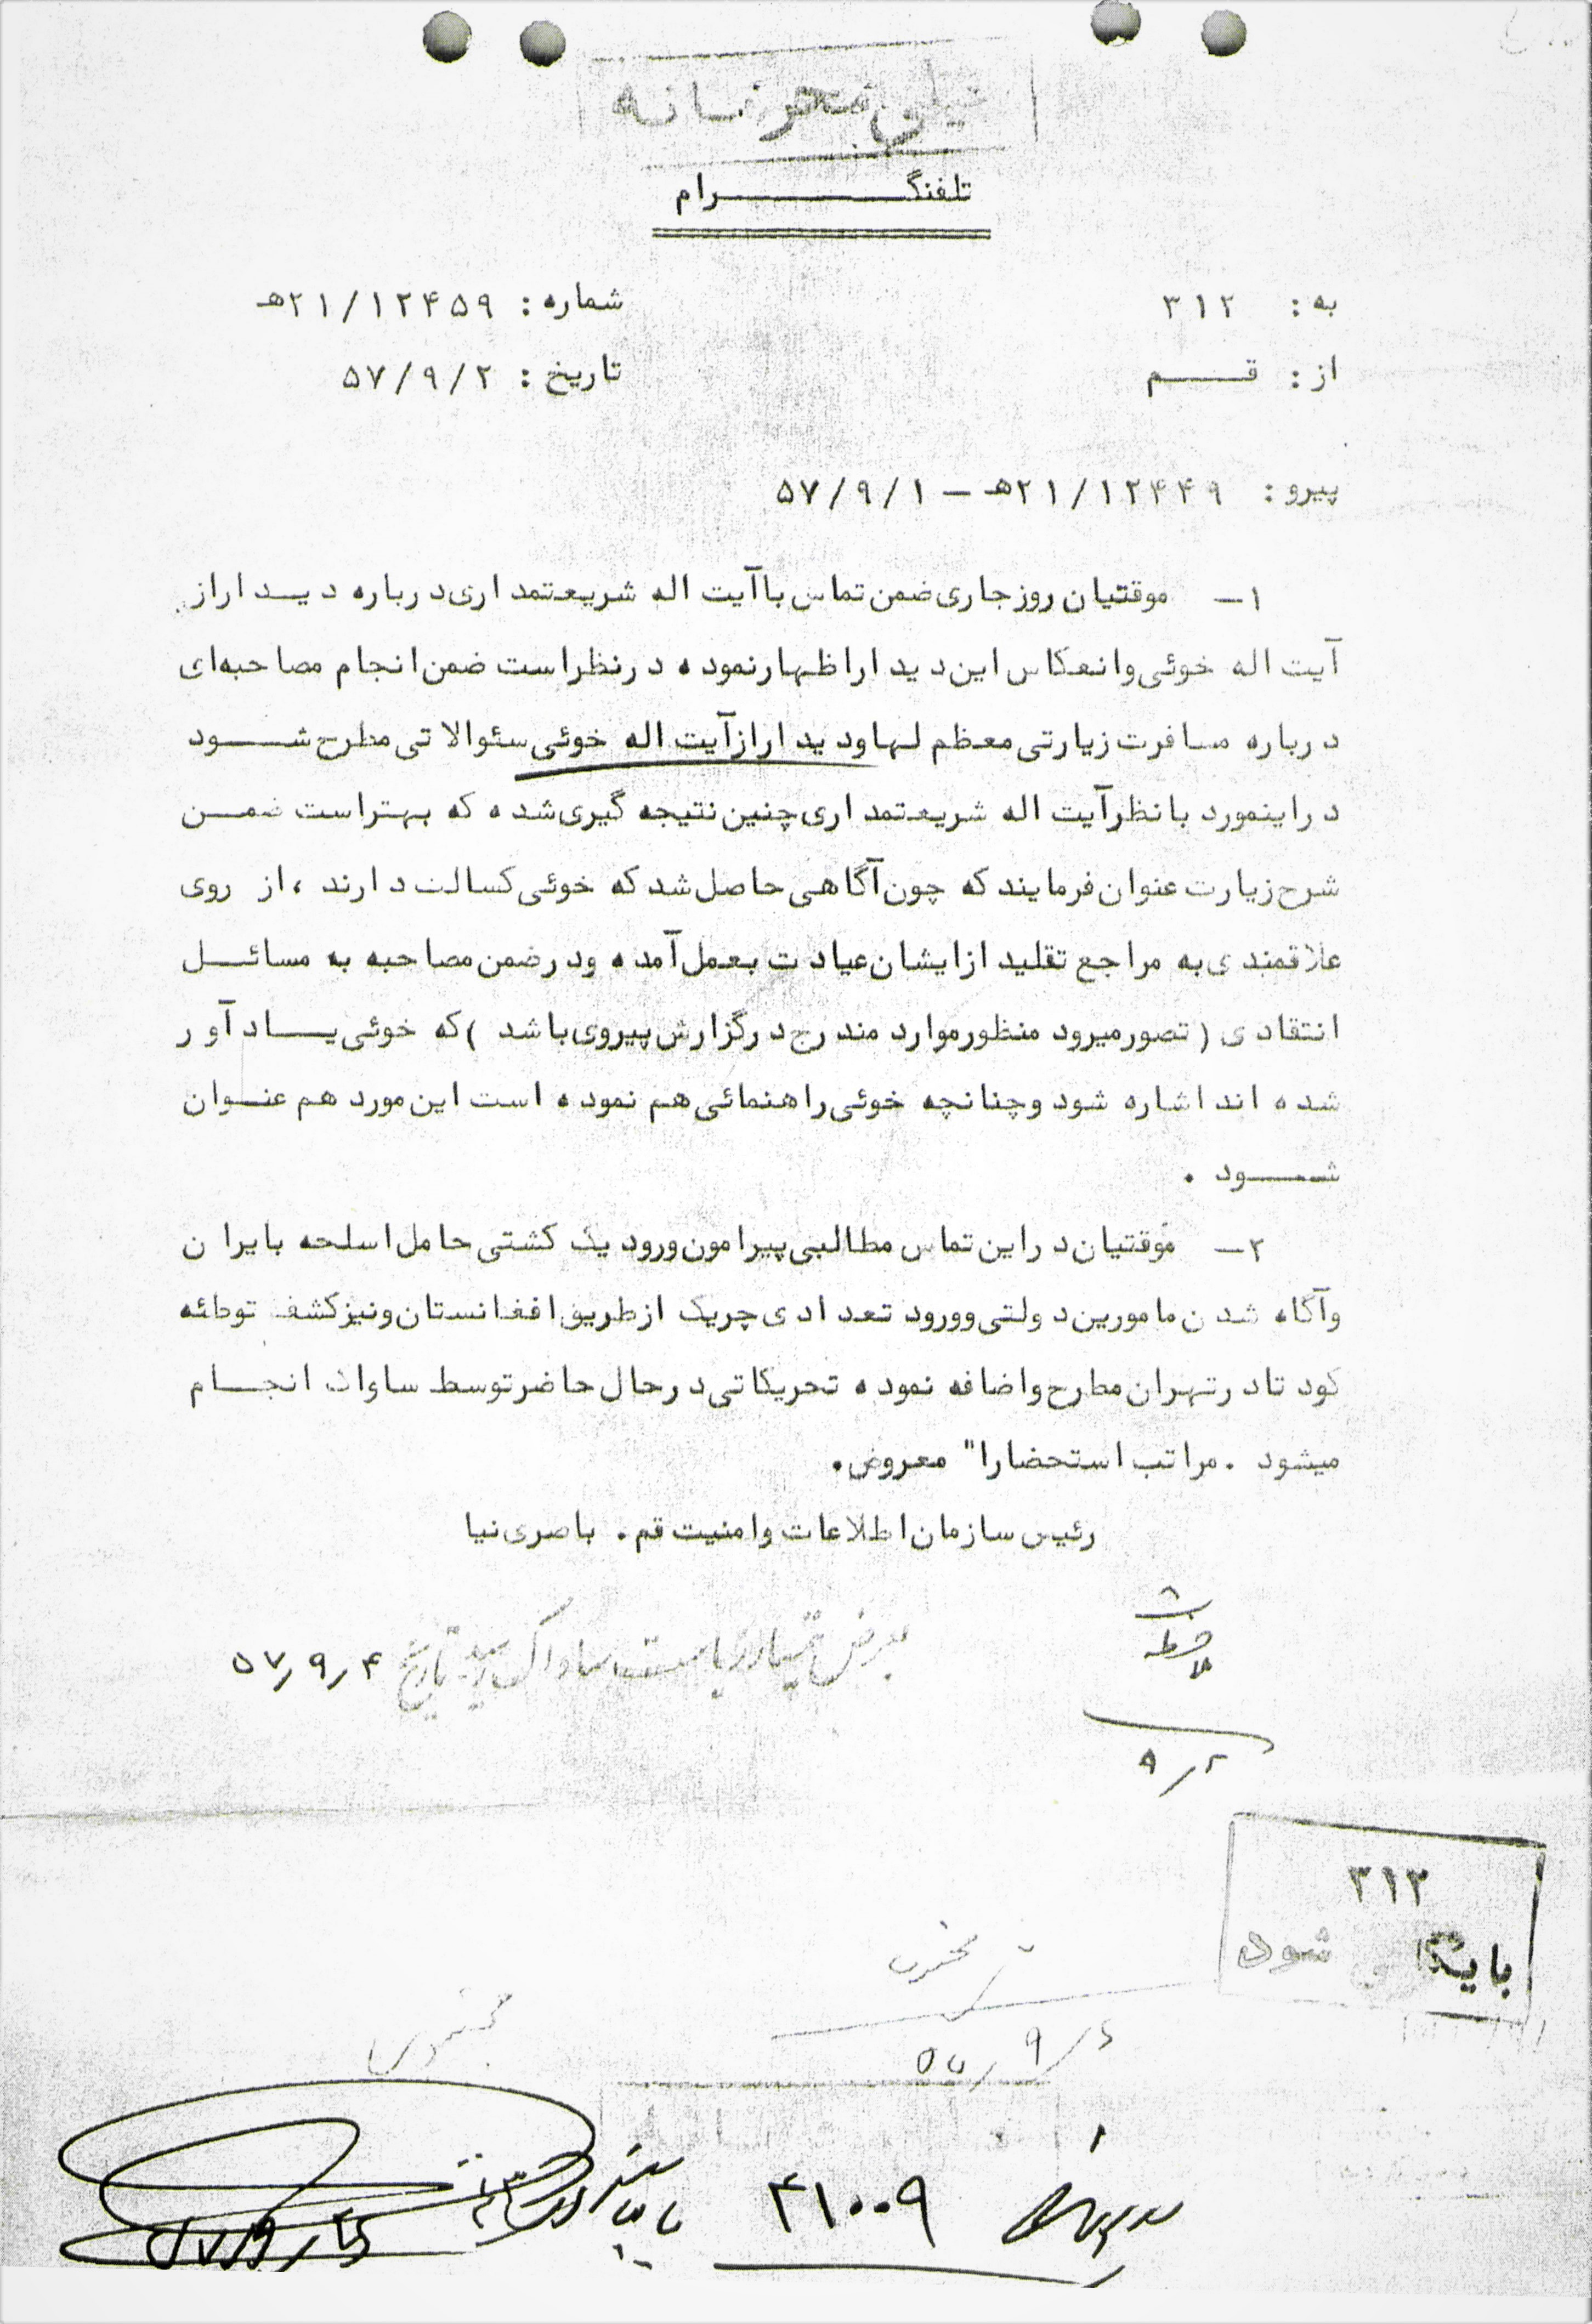 خیلی محرمانه
تلفنگرام
به : ۳۱۲
شماره : ۲۱/۱۲۴۵۹ﻫ
از : قم
تاریخ : ۵۷/۹/۲
پیرو : ۲۱/۱۲۴۴۹ﻫ – ۵۷/۹/۱
۱– موقتیان روز جاری ضمن تماس با آیت اله شریعتمداری درباره دیدار از
آیت اله خوئی و انعکاس این دیدار اظهار نموده در نظر است ضمن انجام مصاحبه‌ای
درباره مسافرت زیارتی معظم لها و دیدار از آیت اله خوئی سئوالاتی مطرح شود
در اینمورد با نظر آیت اله شریعتمداری چنین نتیجه گیری شده که بهتر است ضمن
شرح زیارت عنوان فرمایند که چون آگاهی حاصل شد که خوئی کسالت دارند ، از روی
علاقمندی به مراجع تقلید از ایشان عیادت بعمل آمده و در ضمن مصاحبه به مسائل
انتقادی ( تصور میرود منظور موارد مندرج در گزارش پیروی باشد ) که خوئی یادآور
شده اند اشاره شود و چنانچه خوئی راهنمائی هم نموده است این مورد هم عنوان
شود .
۲– موقتیان در این تماس مطالبی پیرامون ورود یک کشتی حامل اسلحه بایران
و آگاه شدن مامورین دولتی و ورود تعدادی چریک از طریق افغانستان و نیز کشف توطئه
کودتا در تهران مطرح و اضافه نموده تحریکاتی در حال حاضر توسط ساواک انجام
میشود . مراتب استحضارا" معروض .
رئیس سازمان اطلاعات و امنیت قم . باصری نیا
بعرض تیمسار ریاست ساواک رسید تاریخ ۵۷/۹/۴
ملاحظه شد
۹/۲
۳۱۲
بایگانی شود
۵۷/۹/۶
۴۱۰۰۹